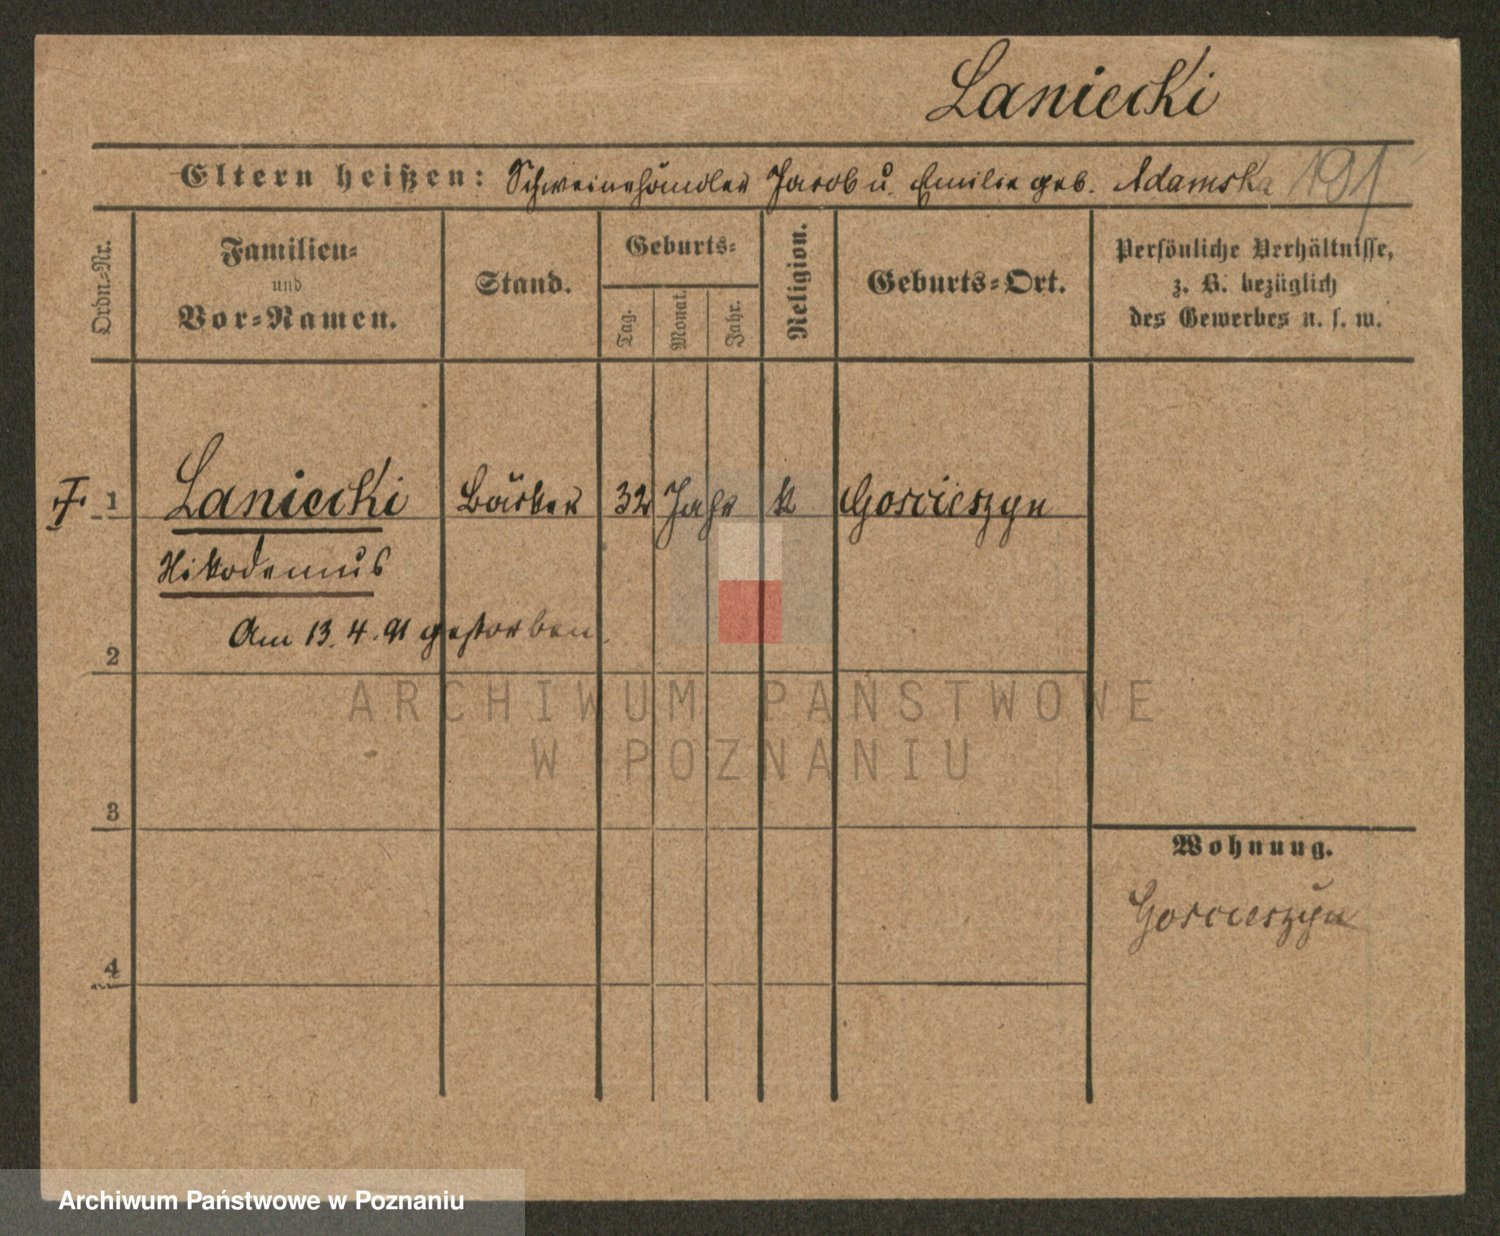 Laniecki
Eltern heißen: Schweinehändler Jacob u. Emilie geb. Adamska 191
Ordn.-Nr.
Familien-
und
Vor-Namen.
Stand.
Geburts-
Tag.
Monat.
Jahr.
Religion.
Geburts-Ort.
Persönliche Verhältnisse,
z. B. bezüglich
des Gewerbes u. s. w.
1 Laniecki Bäcker 32 Jahr k Goscieszyn
Nikodemus
Am 13. 4. 91 gestorben.
2
ARCHIWUM PAŃSTWOWE
W POZNANIU
3
Wohnung.
Goscieszyn
4
Archiwum Państwowe w Poznaniu